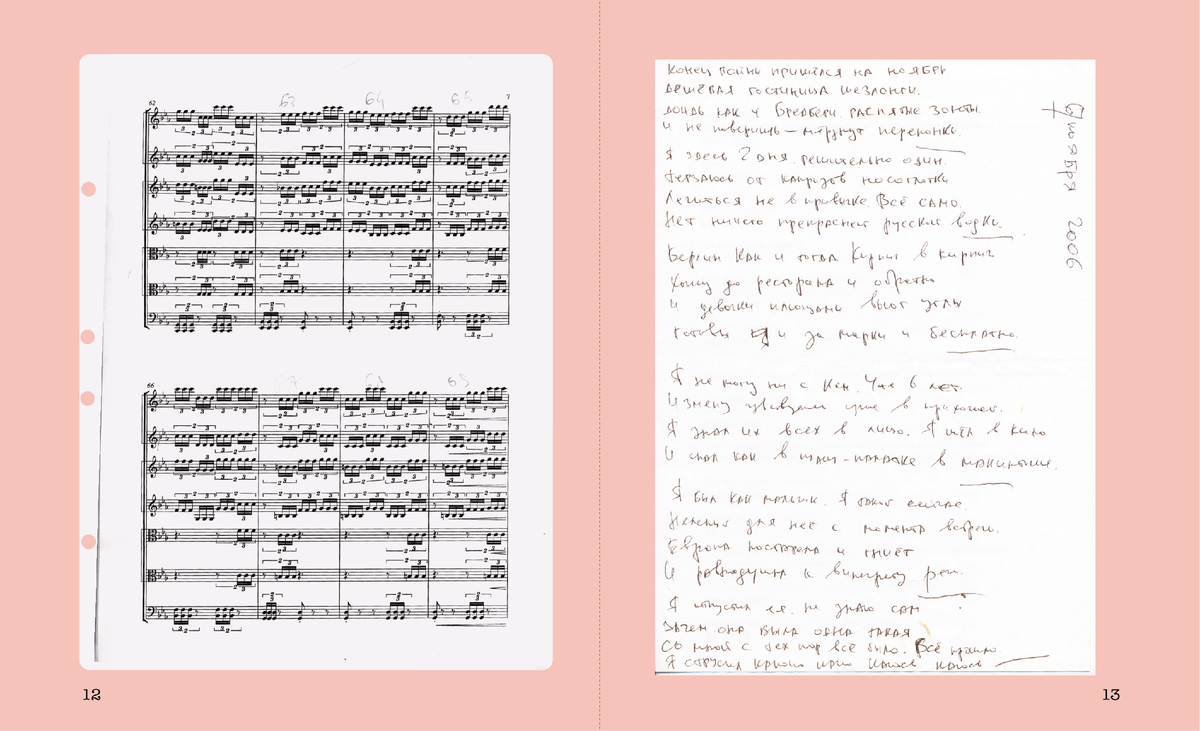 62
63
64
65
7
66
67
68
69
12
Конец войны пришёлся на ноябрь
Дешёвая гостиница шезлонги.
Дождь как у Бредбери. распятые зонты
и не поверишь —
Я здесь 2 дня. решительно один.
Терзаюсь от капризов носоглотки
Лечиться не в привычке. Всё само.
Нет ничего прекрасней русской водки.
Берлин как и тогда Кирпич в кирпич
Хожу до ресторана и обратно
и девочки площади вьют углы
Готовы и за марки и бесплатно.
Я не могу ни с кем. Уже 6 лет.
Измену чувствуем уже в прихожей.
Я знал их всех в лицо. Я шёл в кино
И спал как в плащ-палатке в макинтоше.
Я был как мальчик. Я такой сейчас.
для неё с момента встречи.
Европа постарела и гниёт
И равнодушна к винегрету речи.
Я отпустил её. не знаю сам
Зачем она была одна такая
Со мной с тех пор всё было. Всё прошло
Я
ноября 2006
13